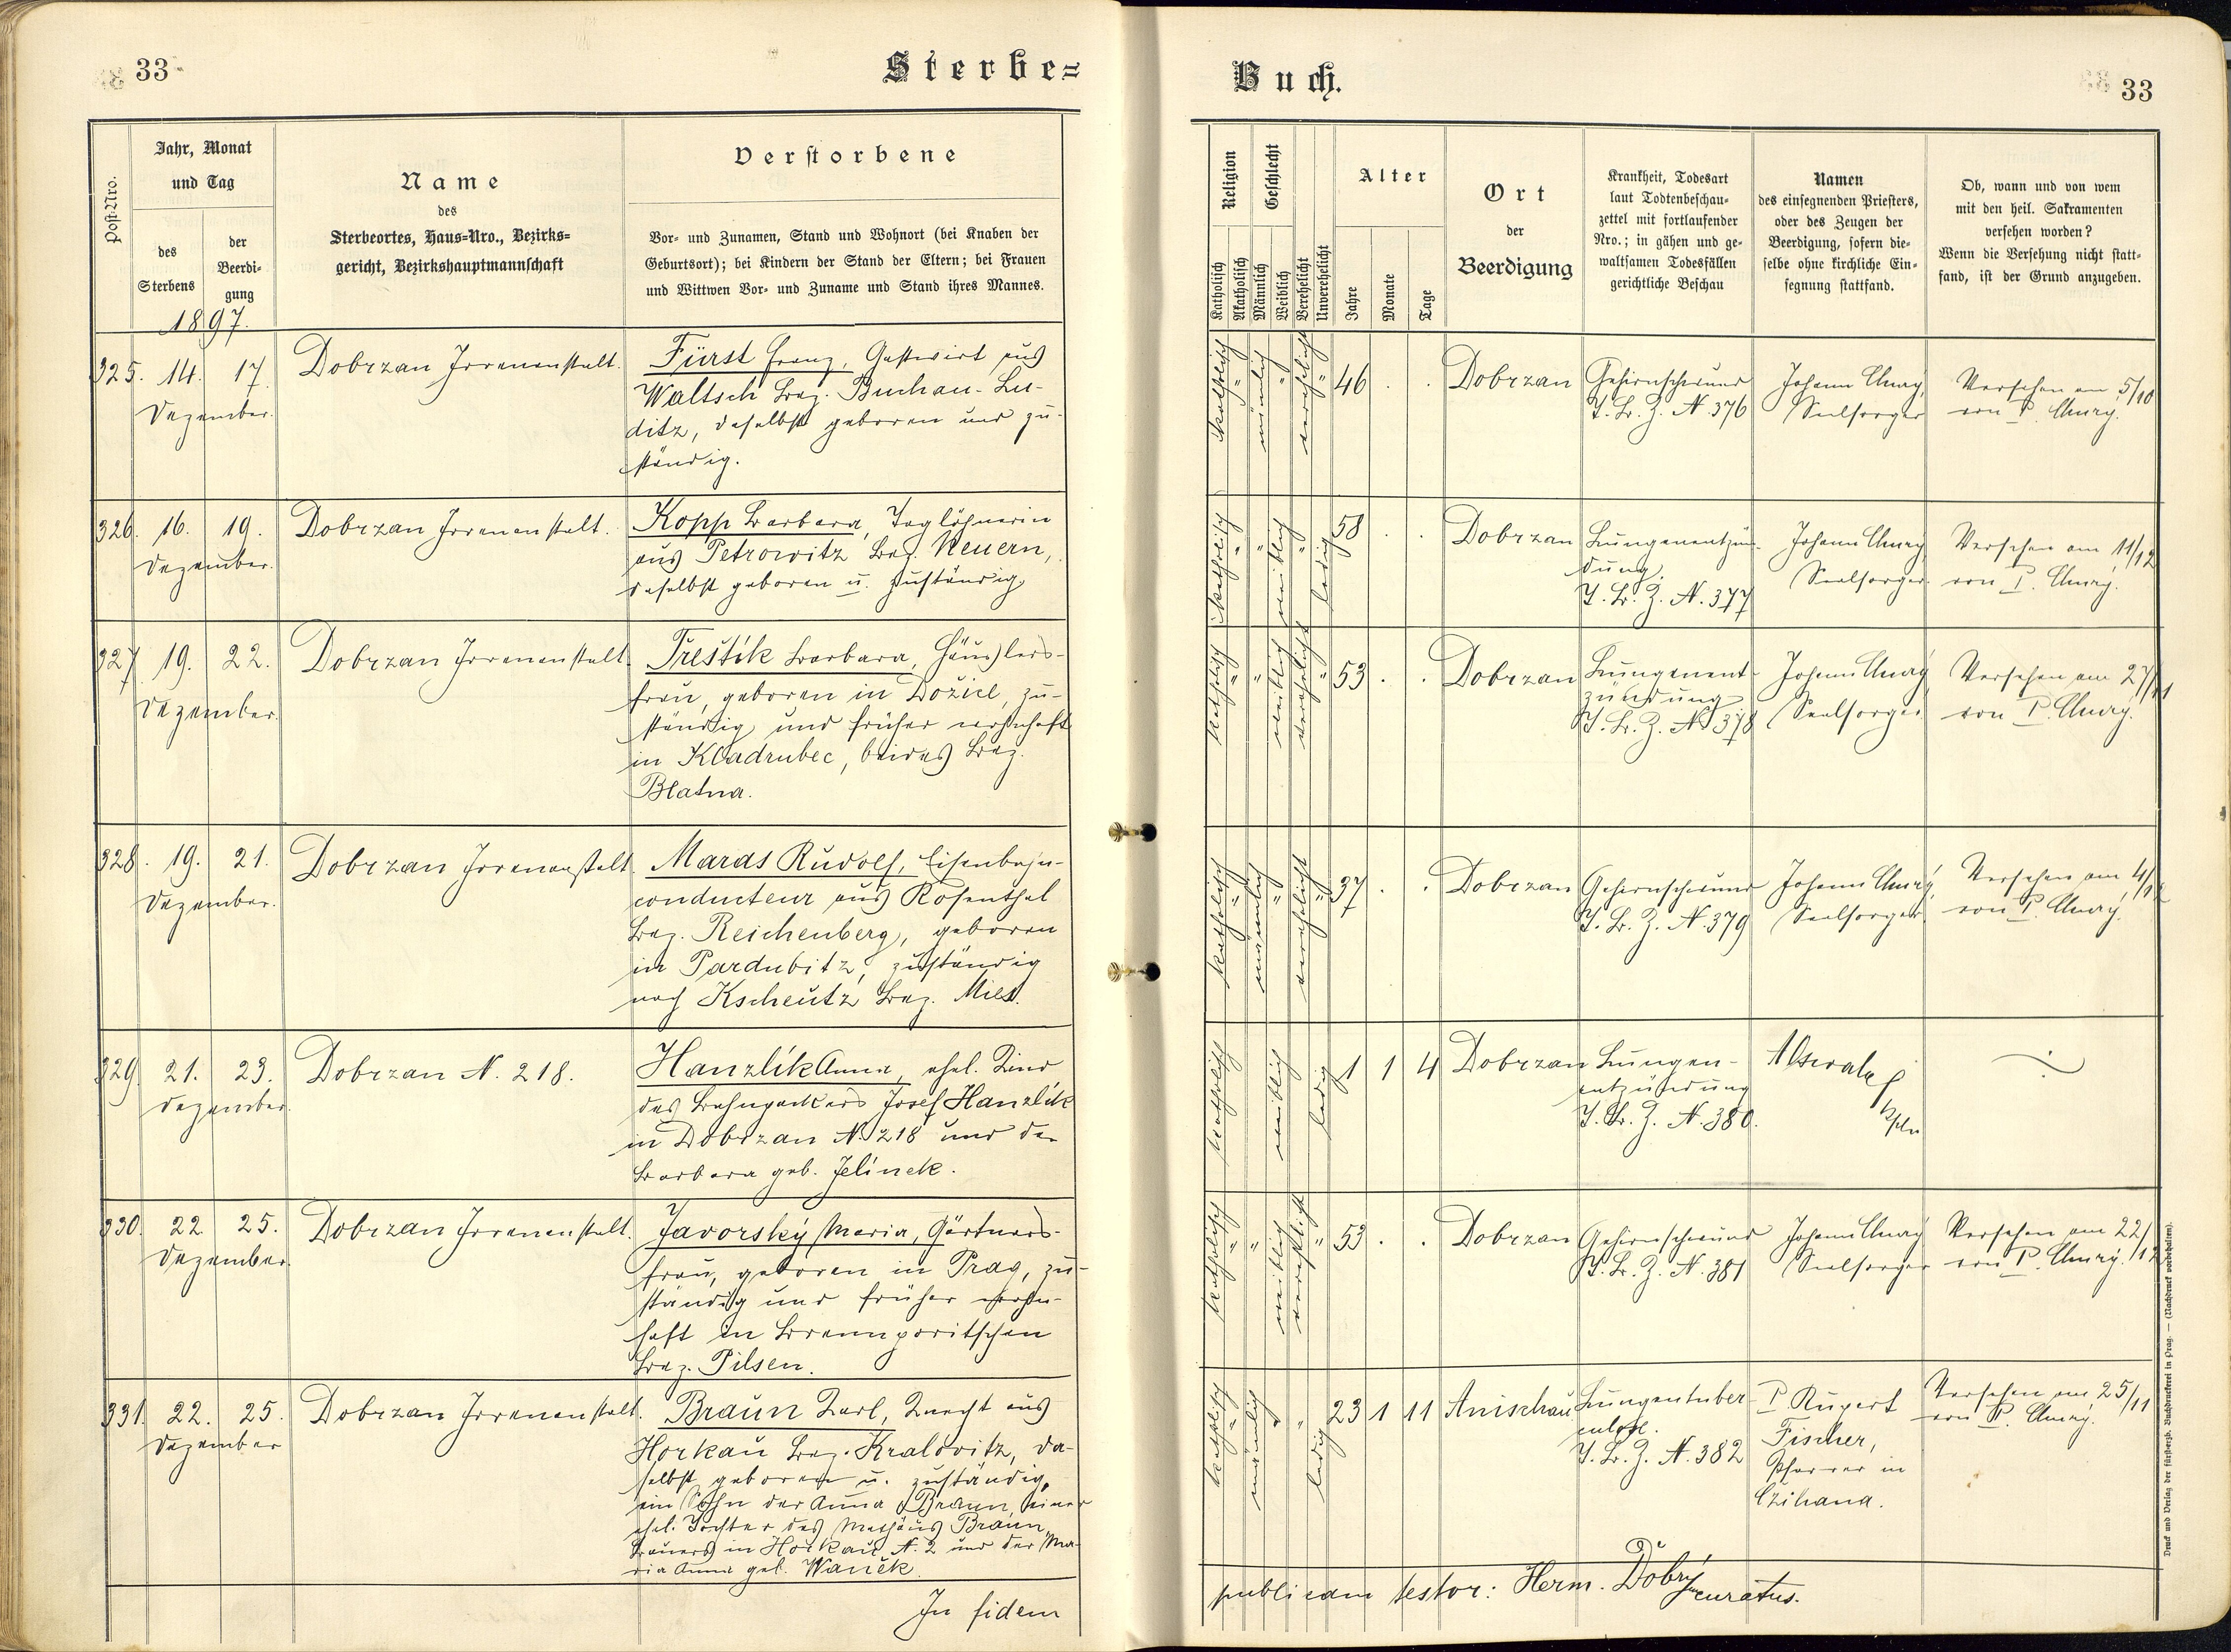 33
Sterbe=
Post-Nro.
Jahr, Monat
und Tag
des
Sterbens
der
Beerdi-
gung
Name
des
Sterbeortes, Haus=Nro., Bezirks=
gericht, Bezirkshauptmannschaft
Verstorbene
Vor- und Zunamen, Stand und Wohnort (bei Knaben der
Geburtsort); bei Kindern der Stand der Eltern; bei Frauen
und Wittwen Vor- und Zuname und Stand ihres Mannes.
1897.
325. 14. 17.
Dezember.
Dobrzan Irrenanstalt.
Fürst Franz, Gastwirt aus
Waltsch Bez. Buchau-Lu-
ditz, daselbst geboren und zu-
ständig.
326. 16. 19.
Dezember.
Dobrzan Irrenanstalt.
Kopp Barbara, Taglöhnerin
aus Petrowitz Bez. Neuern,
daselbst geboren u. zuständig.
327 19. 22.
Dezember.
Dobrzan Irrenanstalt
Treštík Barbara, Häuslers-
frau, geboren in Dožicl, zu-
ständig und früher wohnhaft
in Kladrubec, beides Bez.
Blatna.
328. 19. 21.
Dezember.
Dobrzan Irrenanstalt.
Maras Rudolf, Eisenbahn-
conducteur aus Rosenthal
Bez. Reichenberg, geboren
in Pardubitz, zuständig
nach Kscheutz Bez. Mies.
329 21. 23.
Dezember.
Dobrzan N. 218.
Hanzlík Anna, ehel. Kind
des Bahnpackers Josef Hanzlík
in Dobrzan N. 218 und der
Barbara geb. Jelínek.
330. 22 25.
Dezember.
Dobrzan Irrenanstalt.
Javorský Maria, Gärtners-
frau, geboren in Prag, zu-
ständig und früher wohn-
haft in Brennporitschen
Bez. Pilsen.
331. 22. 25.
Dezember
Dobrzan Irrenanstalt.
Braun Karl, Knecht aus
Horkau Bez. Kralovitz, da-
selbst geboren u. zuständig,
ein Sohn der Anna Braun, einer
ehel. Tochter des Mathäus Braun,
Bauers in Horkau N. 2 und der Ma-
ria Anna geb. Wanék.
In fidem
Buch.
33
Religion
Geschlecht
Katholisch
Akatholisch
Männlich
Weiblich
Verehelicht
Unverehelicht
Alter
Jahre
Monate
Tage
Ort
der
Beerdigung
Krankheit, Todesart
laut Todtenbeschau-
zettel mit fortlaufender
Nro.; in gähen und ge-
waltsamen Todesfällen
gerichtliche Beschau
Namen
des einsegnenden Priesters,
oder des Zeugen der
Beerdigung, sofern die-
selbe ohne kirchliche Ein-
segnung stattfand.
Ob, wann und von wem
mit den heil. Sakramenten
versehen worden?
Wenn die Versehung nicht statt-
fand, ist der Grund anzugeben.
katholisch " männlich " verehelicht " 46 . . Dobrzan
Gehirnschwund
T. B. Z. N. 376
Johann
Seelsorger
Versehen am 5/10
von P.
katholisch " " weiblich " ledig 58 . . Dobrzan
Lungenentzün-
dung.
T. B. Z. N. 377
Johann
Seelsorger
Versehen am 11/12
von P.
katholisch " " weiblich verehelicht " 53 . . Dobrzan
Lungenent-
zündung
T. B. Z. N. 378
Johann
Seelsorger
Versehen am 27/11
von P.
katholisch " männlich " verehelicht " 37 . . Dobrzan
Gehirnschwund
T. B. Z. N. 379
Johann
Seelsorger
Versehen am 4/12
von P.
katholisch weiblich ledig 1 1 4 Dobrzan
Lungen-
entzündung
T. B. Z. N. 380.
katholisch " " weiblich verehelicht " 53 . . Dobrzan
Gehirnschwund
T. B. Z. N. 381
Johann
Seelsorger
Versehen am 22/12
von P.
katholisch " männlich " " ledig 23 1 11 Anischau
Lungentuber-
culose.
T. B. Z. N. 382
P. Rupert
Fischer,
Pfarrer in
Czihana.
Versehen am 25/11
von P.
publicam testor: Herm. Dobrý curatus.
Druck und Verlag der fürsterzb. Buchdruckerei in Prag. — (Nachdruck vorbehalten).